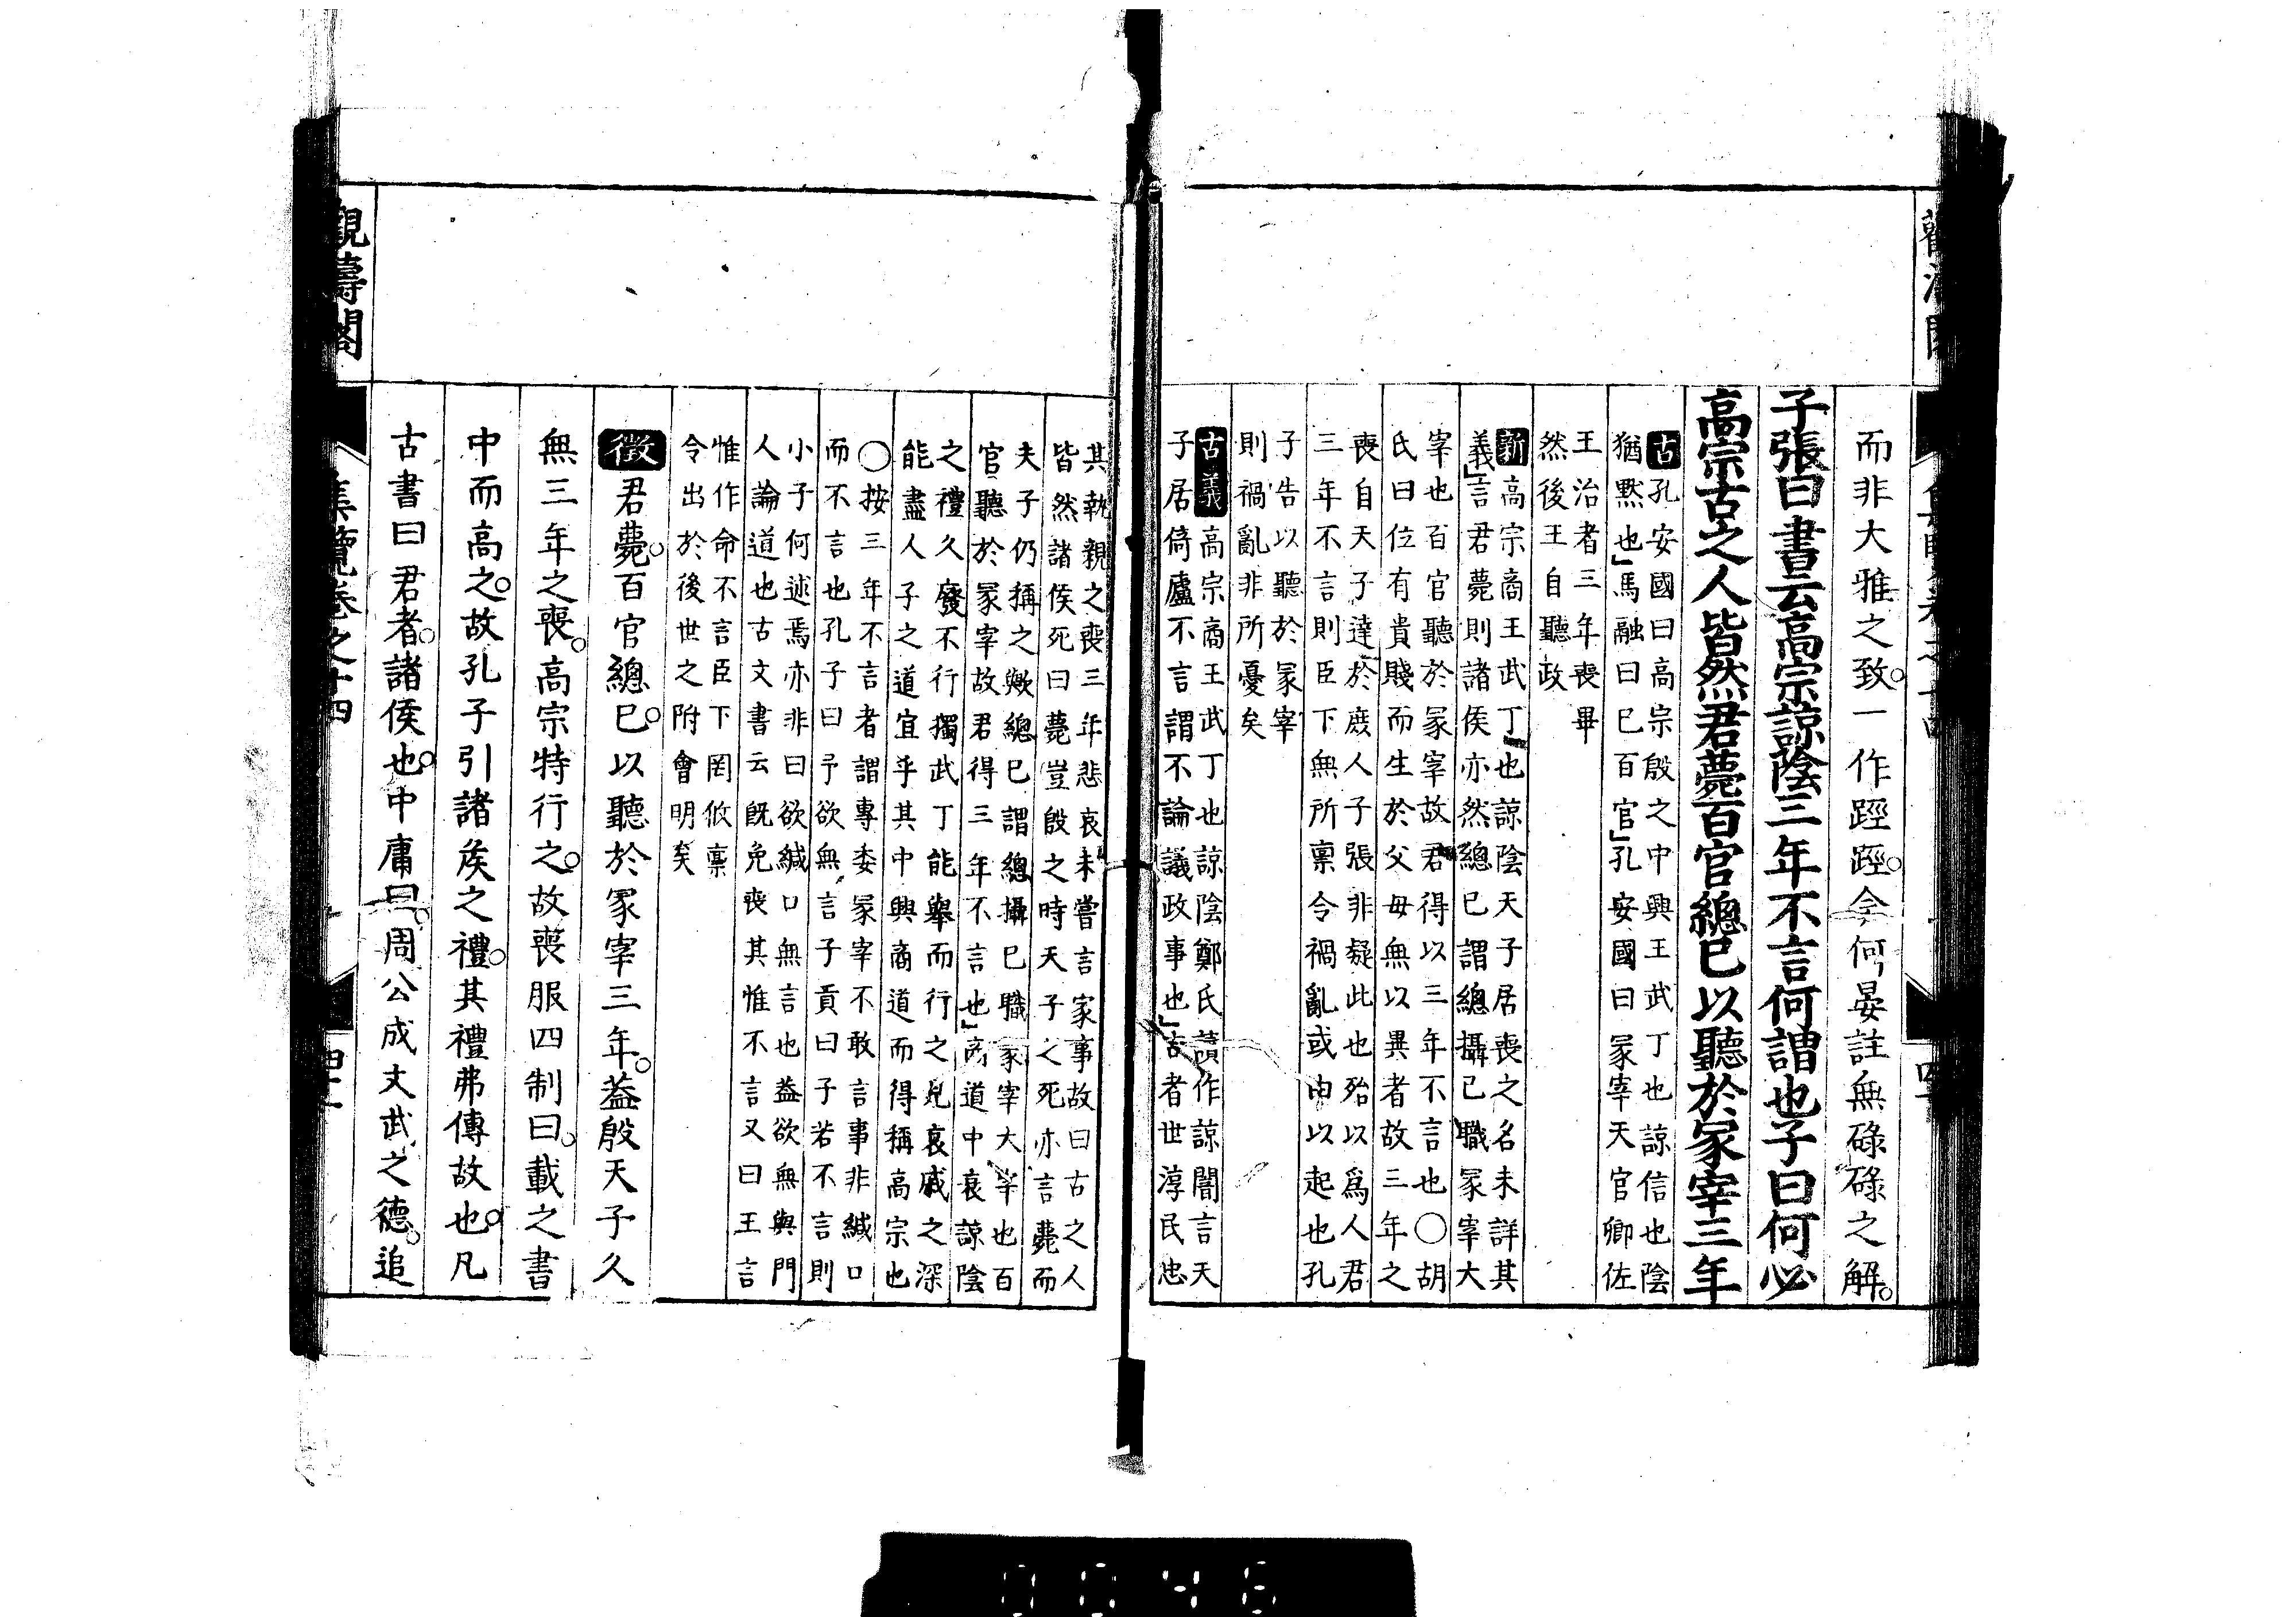 而非大雅之致一作踁踁今何晏註無碌碌之解
子張曰書云高宗諒陰三年不言何謂也子曰何必
高宗古之人皆然君薨百官總已以聽於冢宰三年
古孔安國曰高宗殷之中興王武丁也諒信也陰
猶黙也馬融曰已百官孔安國曰冢宰天官卿佐
王治者三年喪畢
然後王自聽政
新高宗商王武丁也諒陰天子居喪之名未詳其
義言君薨則諸侯亦然總已謂總攝已職冢宰大
宰也百官聽於冢宰故君得以三年不言也○胡
氏曰位有貴賤而生於父母無以異者故三年之
喪自天子達於庶人子張非疑此也殆以爲人君
三年不言則臣下無所禀令禍亂或由以起也孔
子告以聽於冢宰
則禍亂非所憂矣
古義高宗商王武丁也諒陰鄭氏讀作諒闇言天
子居倚廬不言謂不論議政事也古者世淳民忠
其執親之喪三年悲哀未嘗言家事故曰古之人
皆然諸侯死曰薨豈殷之時天子之死亦言薨而
夫子仍稱之歟總已謂總攝已職冢宰大宰也百
官聽於冢宰故君得三年不言也商道中衰諒陰
之禮久廢不行獨武丁能舉而行之見哀戚之深
能盡人子之道宜乎其中興商道而得稱高宗也
○按三年不言者謂專委冢宰不敢言事非緘口
而不言也孔子曰予欲無言子貢曰子若不言則
小子何述焉亦非曰欲緘口無言也盖欲無與門
人論道也古文書云既免喪其惟不言又曰王言
惟作命不言臣下罔攸禀
令出於後世之附會明矣
徵君薨百官總已以聽於冢宰三年盖殷天子久
無三年之喪高宗特行之故喪服四制曰載之書
中而高之故孔子引諸侯之禮其禮弗傳故也凡
古書曰君者諸侯也中庸曰周公成文武之德追
觀濤閣
集覽卷之十四
0046